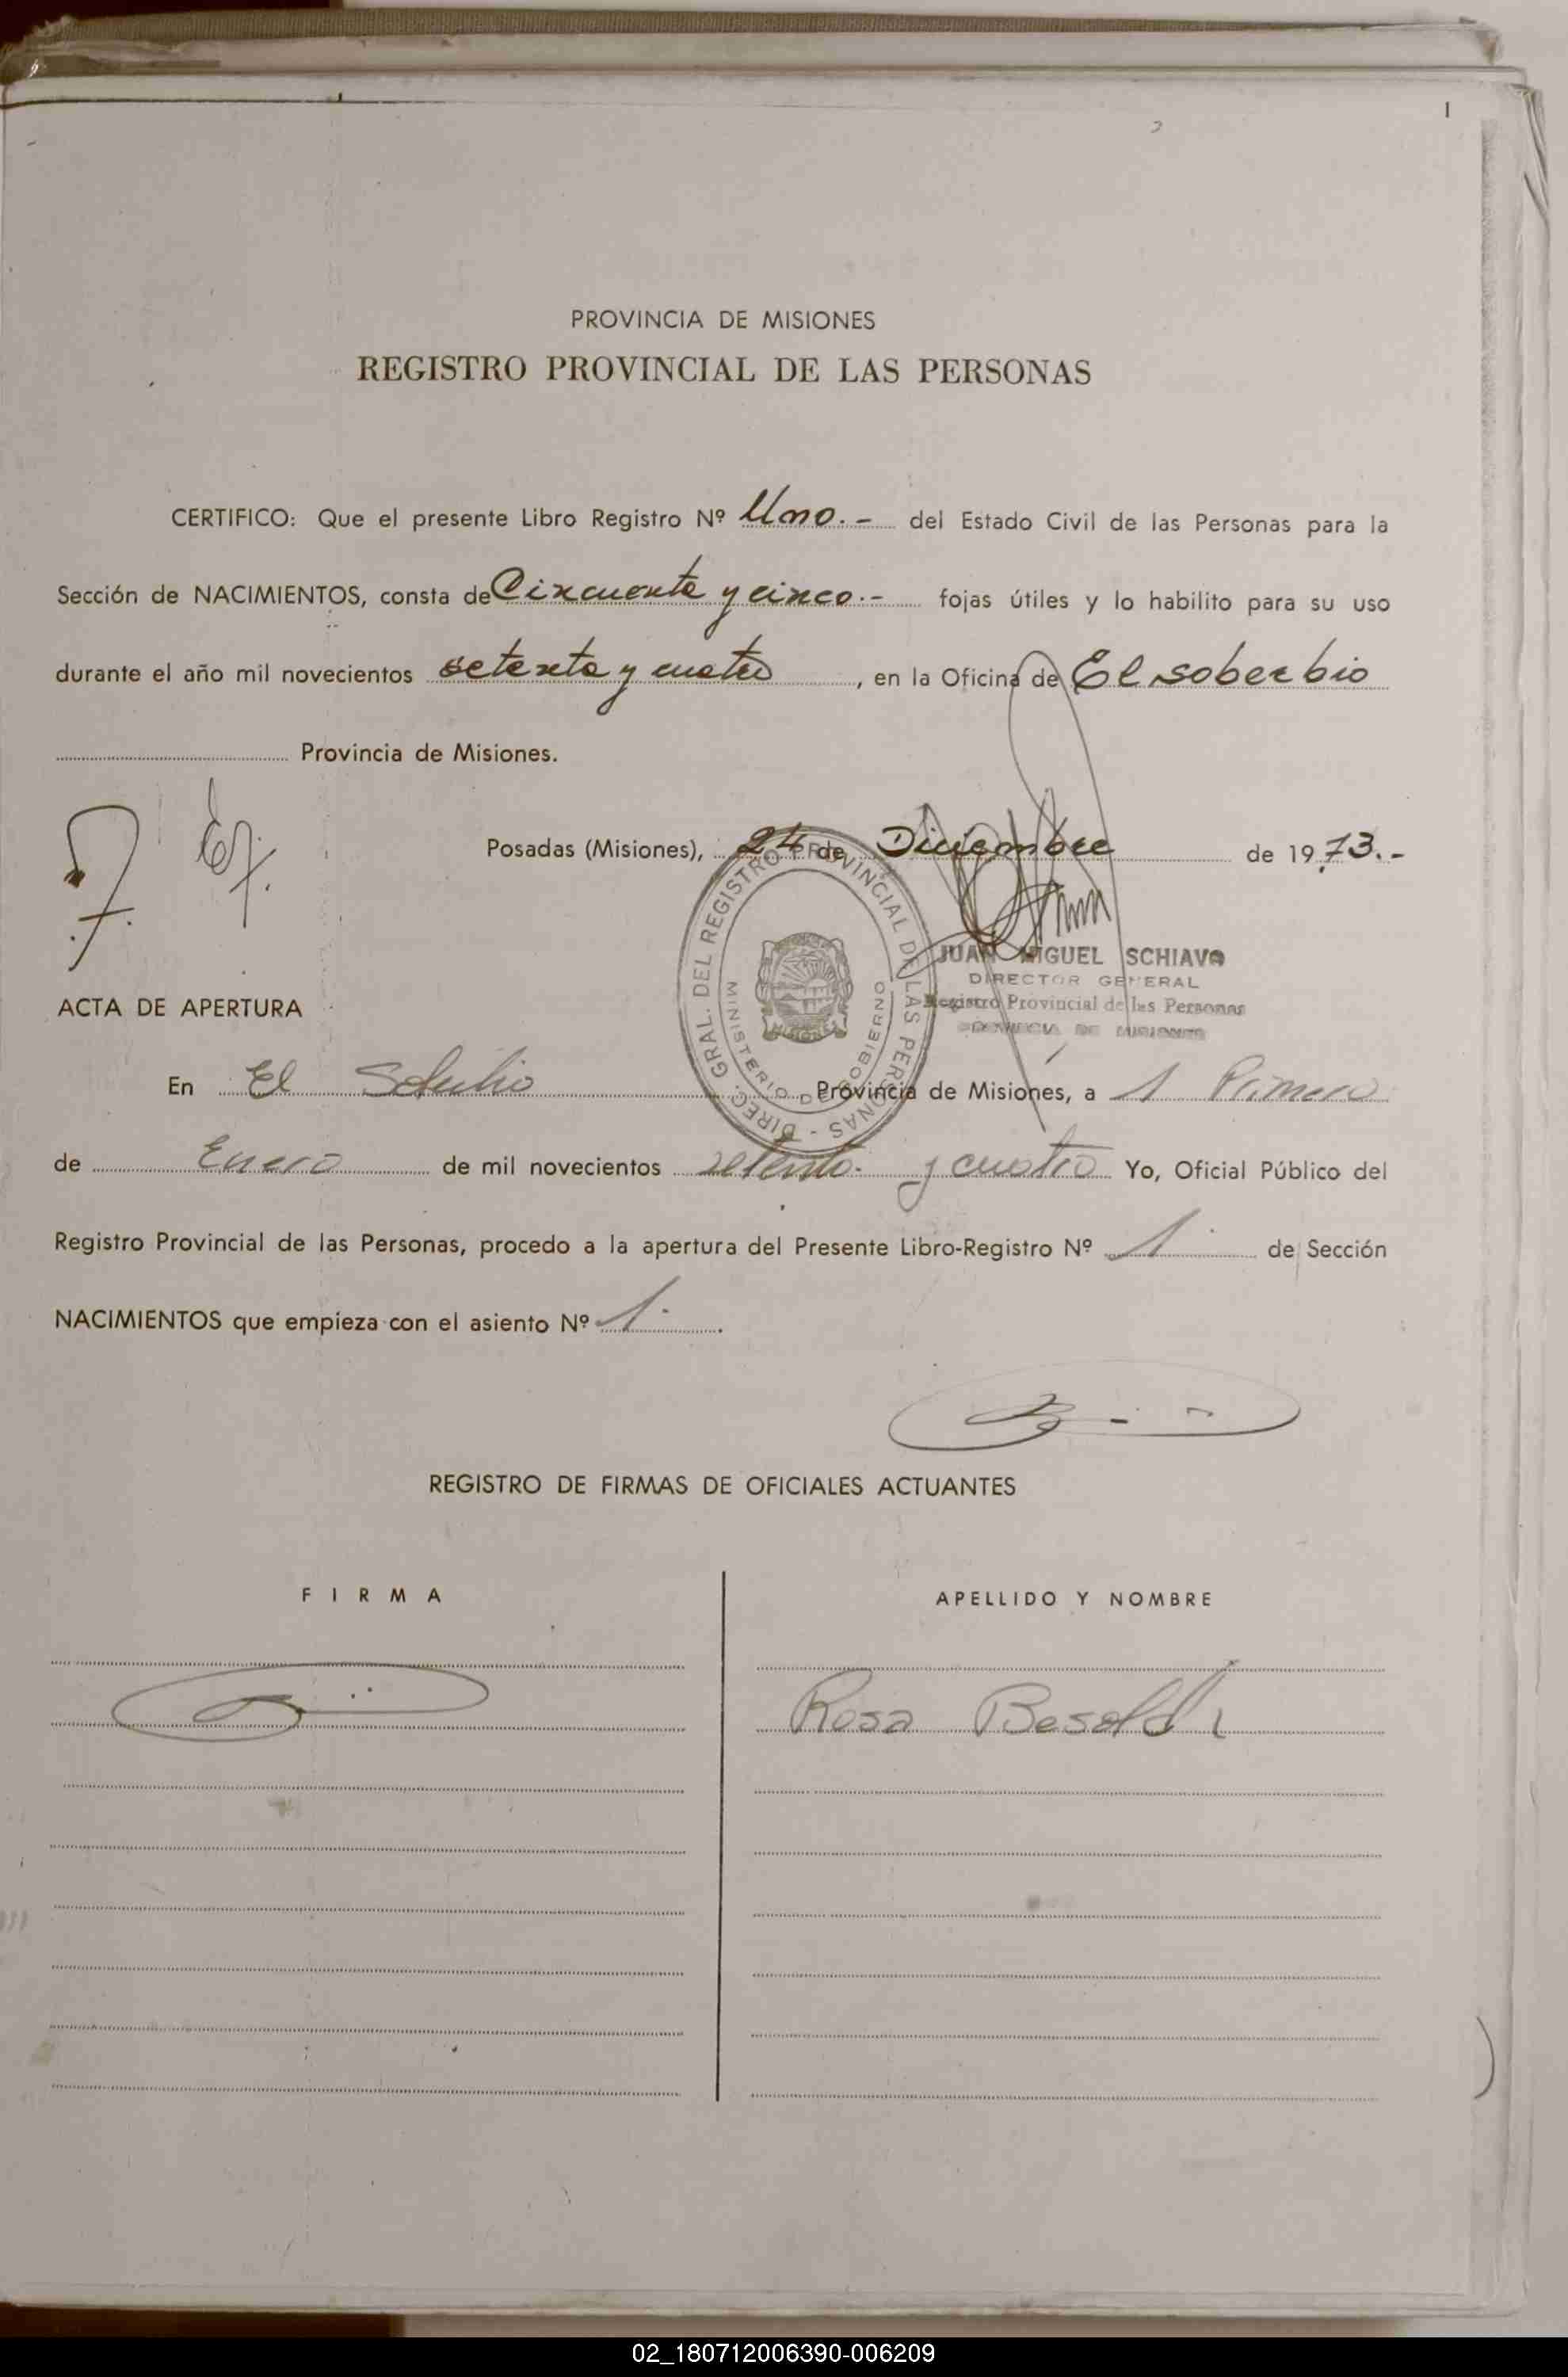 1
PROVINCIA DE MISIONES
REGISTRO PROVINCIAL DE LAS PERSONAS
CERTIFICO: Que el presente Libro Registro Nº Uno.- del Estado Civil de las Personas para la
Sección de NACIMIENTOS, consta de Cincuenta y cinco.- fojas útiles y lo habilito para su uso
durante el año mil novecientos setenta y cuatro, en la Oficina de El soberbio
Provincia de Misiones.
Posadas (Misiones), 24 de Diciembre de 1973.-
DIREC. GRAL. DEL REGISTRO PROVINCIAL DE LAS PERSONAS -
MINISTERIO DE GOBIERNO
MISIONES
JUAN MIGUEL SCHIAVO
DIRECTOR GENERAL
Registro Provincial de las Personas
PROVINCIA DE MISIONES
ACTA DE APERTURA
En El Soberbio Provincia de Misiones, a 1 Primero
de Enero de mil novecientos setenta y cuatro Yo, Oficial Público del
Registro Provincial de las Personas, procedo a la apertura del Presente Libro-Registro Nº 1 de Sección
NACIMIENTOS que empieza con el asiento Nº 1.
REGISTRO DE FIRMAS DE OFICIALES ACTUANTES
FIRMA
APELLIDO Y NOMBRE
Rosa Besoldi
02_180712006390-006209